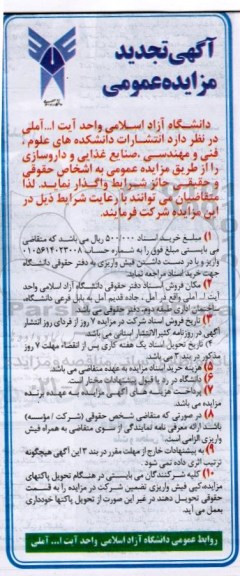 آگهی تجدید
مزایده عمومی
دانشگاه آزاد اسلامی واحد آیت ا... آملی
در نظر دارد انتشارات دانشکده های علوم ،
فنی و مهندسی ،صنایع غذایی و داروسازی
را از طریق مزایده عمومی به اشخاص حقوقی
و حقیقی حائز شرایط واگذار نماید. لذا
متقاضیان می توانند با رعایت شرایط ذیل در
این مزایده شرکت فرمایند.
۱) مبلغ خرید اسناد ۵۰۰/۰۰۰ ریال می باشد که متقاضی
می بایستی مبلغ فوق را به شماره حساب
واریز و یا در دست داشتن فیش واریزی به دفتر حقوقی دانشگاه
جهت خرید اسناد مراجعه نماید.
۲) مکان فروش اسناد دفتر حقوقی دانشگاه آزاد اسلامی واحد
آیت ا... آملی واقع در آمل ، جاده قدیم آمل به بابل فرعی دانشگاه،
دفتر حقوقی می باشد.
۳) تاریخ فروش اسناد شرکت در مزایده ۷ روز از فردای روز انتشار
آگهی در روزنامه کثیرالانتشار استانی می باشد.
۴) تاریخ تحویل اسناد یک هفته کاری پس از انقضاء مهلت ۷ روز
مذکور در بند ۳ می باشد.
۵) هزینه خرید اسناد مزایده به عهده متقاضی می باشد
۶) دانشگاه در رد یا قبول پیشنهادات مختار است
۷) پرداخت هزینه های آگهی مزایده به عهده برنده
مزایده می باشد.
۸) در صورتی که متقاضی شخص حقوقی (شرکت / مؤسسه)
باشد ارائه معرفی نامه نمایندگی از سوی متقاضی به همراه فیش
واریزی الزامی است.
۹) به پیشنهادات خارج از مهلت مقرر در بند ۳ این آگهی هیچگونه
ترتیب اثری داده نمی شود.
۱۰) کلیه شرکت کنندگان می بایستی در هنگام تحویل پاکتهای
مزایده،کپی فیش واریزی تضمین شرکت در مزایده را به قسمت
حقوقی تحویل دهند در غیر این صورت از تحویل پاکتها خودداری
بعمل می آید.
روابط عمومی دانشگاه آزاد اسلامی واحد آیت ا... آملی